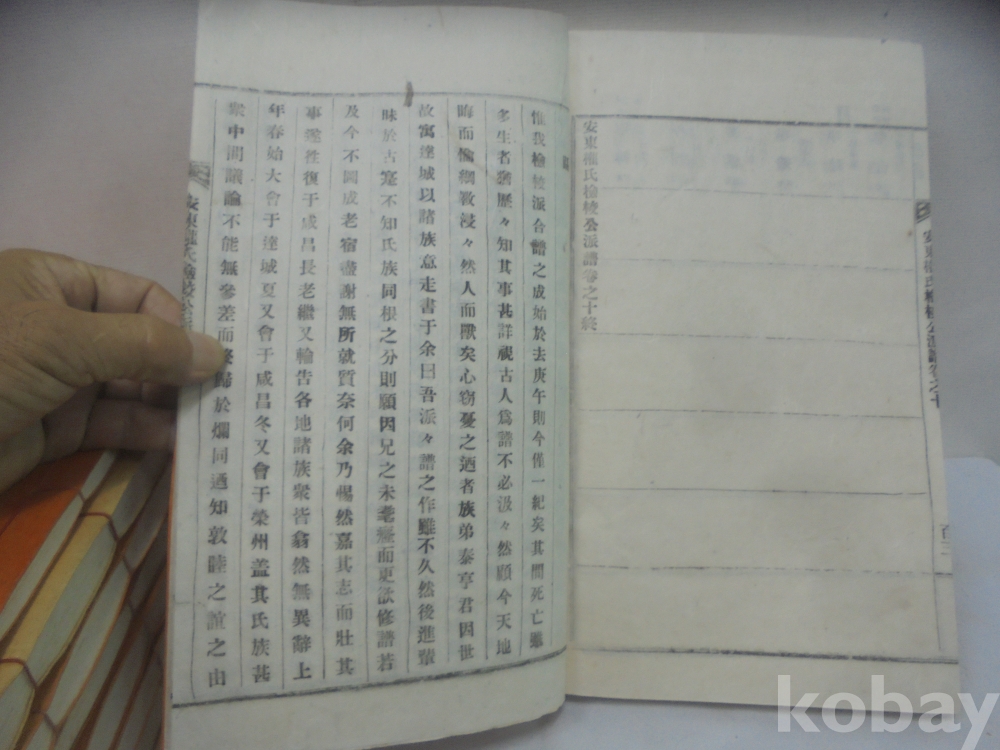 安東權氏檢校公派譜卷之十
百三
安東權氏檢校公派譜卷之十終
惟我檢校派合譜之成始於去庚午則今僅一紀矣其間死亡雖
多生者舊歷々知其事甚詳視古人爲譜不必汲々然顧今天地
晦而倫綱斁浸々然人而獸矣心竊憂之迺者族弟泰亨君因世
故寓達城以諸族意走書于余曰吾派々譜之作雖不久然後進輩
昧於古寔不知氏族同根之分則願因兄之未耄而更欲修譜若
及今不圖成老宿盡謝無所就質奈何余乃惕然嘉其志而壯其
事遂往復于咸昌長老繼又輪告各地諸族衆皆翕然無異辭上
年春始大會于達城夏又會于咸昌冬又會于榮州盖其氏族甚
衆中間議論不能無參差而終歸於爛同通知敦睦之誼之由
安東權氏檢校公
kobay